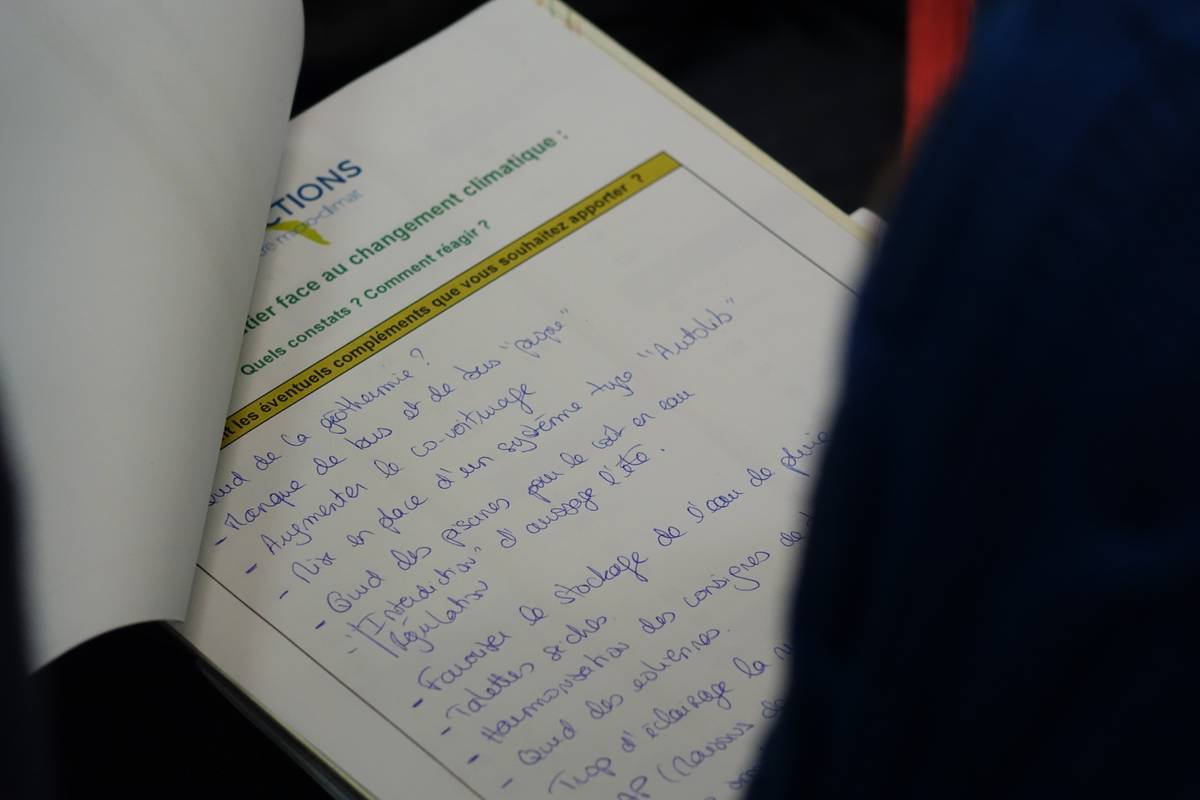 CTIONS
climat
tier face au changement climatique :
Quels constats ? Comment réagir ?
t les éventuels compléments que vous souhaitez apporter ?
Quid de la géothermie ?
- Manque de bus et de bus "propre"
- Augmenter le co-voiturage
- Mise en place d'un système type "Autolib"
- Quid des piscines pour le coût en eau
- "Interdiction" d'arrosage l'été.
Régulation
- Favoriser le stockage de l'eau de pluie
- Toilettes sèches.
- Harmonisation des consignes de
- Quid des éoliennes.
Trop d'éclairage la
AP (Maisons